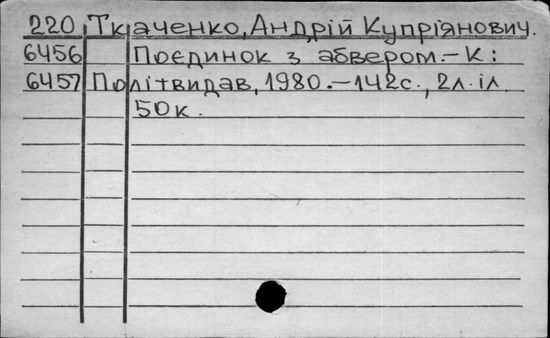 220 Ткаченко, Андрій Купріянович.
6456 Поєдинок з абвером.–К:
6457 Політвидав, 1980.–142с., 2л.іл.
50к.